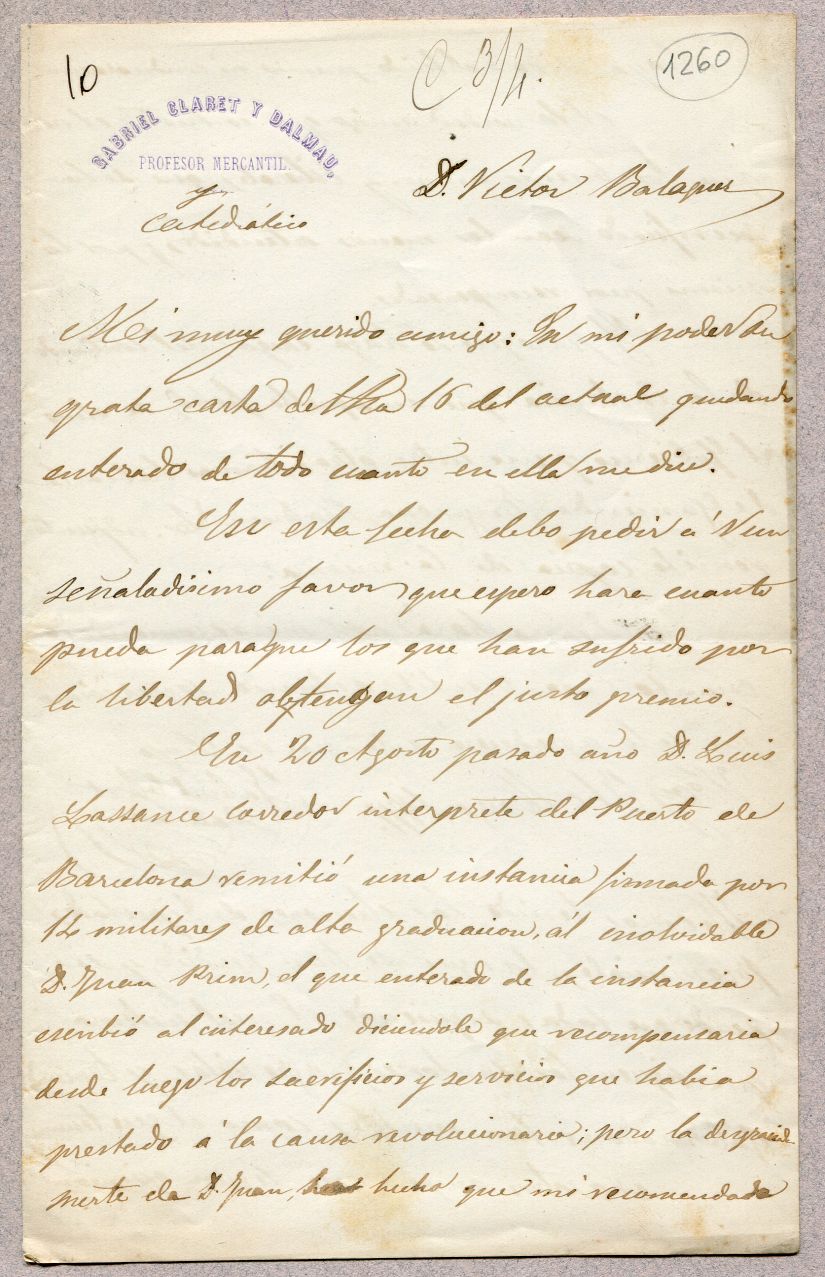 10
C 3/4.
1260
GABRIEL CLARET Y DALMAU,
PROFESOR MERCANTIL.
y
catedrático
D. Victor Balaguer
Mi muy querido amigo: En mi poder su
grata carta de fha 16 del actual quedando
enterado de todo cuanto en ella me dice.
En esta fecha debo pedir á V un
señaladisimo favor que espero hará cuanto
pueda para que los que han sufrido por
la libertad obtengan el justo premio.
En 20 Agosto pasado año D. Luis
Lassance corredor interprete del Puerto de
Barcelona remitió una instancia firmada por
14 militares de alta graduacion, ál inolvidable
D. Juan Prim, el que enterado de la instancia
escribió al interesado diciendole que recompensaria
desde luego los sacrificios y servicios que habia
prestado á la causa revolucionaria; pero la desgraciada
muerte de D. Juan, hecho que mi recomendado